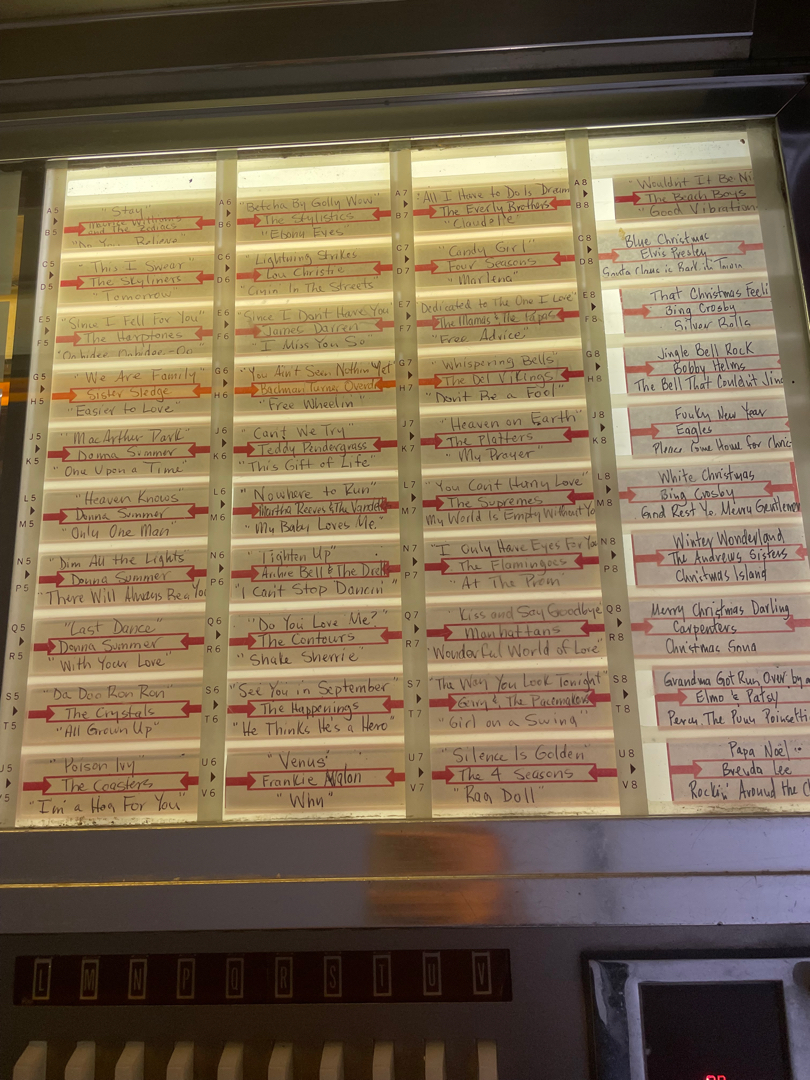 A5
B5
"Stay"
Maurice Williams
and the Zodiacs
"Do You Believe"
C5
D5
"This I Swear"
The Skyliners
"Tomorrow"
E5
F5
"Since I Fell For You"
The Harptones
G5
H5
"We Are Family"
Sister Sledge
"Easier to Love"
J5
K5
"MacArthur Park"
Donna Summer
"One Upon a Time"
L5
M5
"Heaven Knows"
Donna Summer
"Only One Man"
N5
P5
"Dim All the Lights
Donna Summer
"There Will Always Be a You
Q5
R5
"Last Dance"
Donna Summer
"With Your Love"
S5
T5
"Da Doo Ron Ron"
The Crystals
"All Grown Up"
U5
V5
"Poison Ivy"
The Coasters
"I'm a Hog For You"
A6
B6
"Betcha By Golly Wow"
The Stylistics
"Ebony Eyes"
C6
D6
Lightning Strikes
Lou Christie
"Cryin' In The Streets"
E6
F6
"Since I Don't Have You
James Darren
"I Miss You So"
G6
H6
"You Ain't Seen Nothin' Yet"
Bachman Turner Overdr
"Free Wheelin'
J6
K6
"Can't We Try"
Teddy Pendergrass
"This Gift of Life"
L6
M6
"Nowhere to Run"
Martha Reeves & The Vandells
"My Baby Loves Me"
N6
P6
"Tighten Up"
Archie Bell & The Drells
"I Can't Stop Dancin'"
Q6
R6
"Do You Love Me?"
The Contours
"Shake Sherrie"
S6
T6
"See You in September"
The Happenings
"He Thinks He's a Hero"
U6
V6
"Venus"
Frankie Avalon
"Why"
A7
B7
"All I Have to Do Is Dream
The Everly Brothers
"Claudette"
C7
D7
"Candy Girl"
Four Seasons
"Marlena"
E7
F7
"Dedicated to The One I Love"
The Mamas & The Papas
"Free Advice"
G7
H7
"Whispering Bells"
The Del Vikings
"Don't Be a Fool"
J7
K7
"Heaven on Earth"
The Platters
"My Prayer"
L7
M7
"You Can't Hurry Love"
The Supremes
"My World Is Empty Without Yo
N7
P7
"I Only Have Eyes For You
The Flamingoes
"At The Prom"
Q7
R7
"Kiss and Say Goodbye"
Manhattans
"Wonderful World of Love"
S7
T7
"The Way You Look Tonight"
Gerry & The Pacemakers
"Girl on a Swing"
U7
V7
"Silence Is Golden"
The 4 Seasons
"Rag Doll"
A8
B8
"Wouldn't It Be Ni
The Beach Boys
"Good Vibration
C8
D8
Blue Christmas
Elvis Presley
Santa Claus is Back in Town
E8
F8
That Christmas Feeli
Bing Crosby
Silver Bells
G8
H8
Jingle Bell Rock
Bobby Helms
The Bell That Couldn't Jing
J8
K8
Funky New Year
Eagles
Please Come Home for Chris
L8
M8
White Christmas
Bing Crosby
God Rest Ye Merry Gentlemen
N8
P8
Winter Wonderland
The Andrews Sisters
Christmas Island
Q8
R8
Merry Christmas Darling
Carpenters
Christmas Song
S8
T8
Grandma Got Run Over by a
Elmo & Patsy
Percy, The Puny Poinsetti
U8
V8
Papa Noël
Brenda Lee
Rockin' Around the C
L M N P Q R S T U V